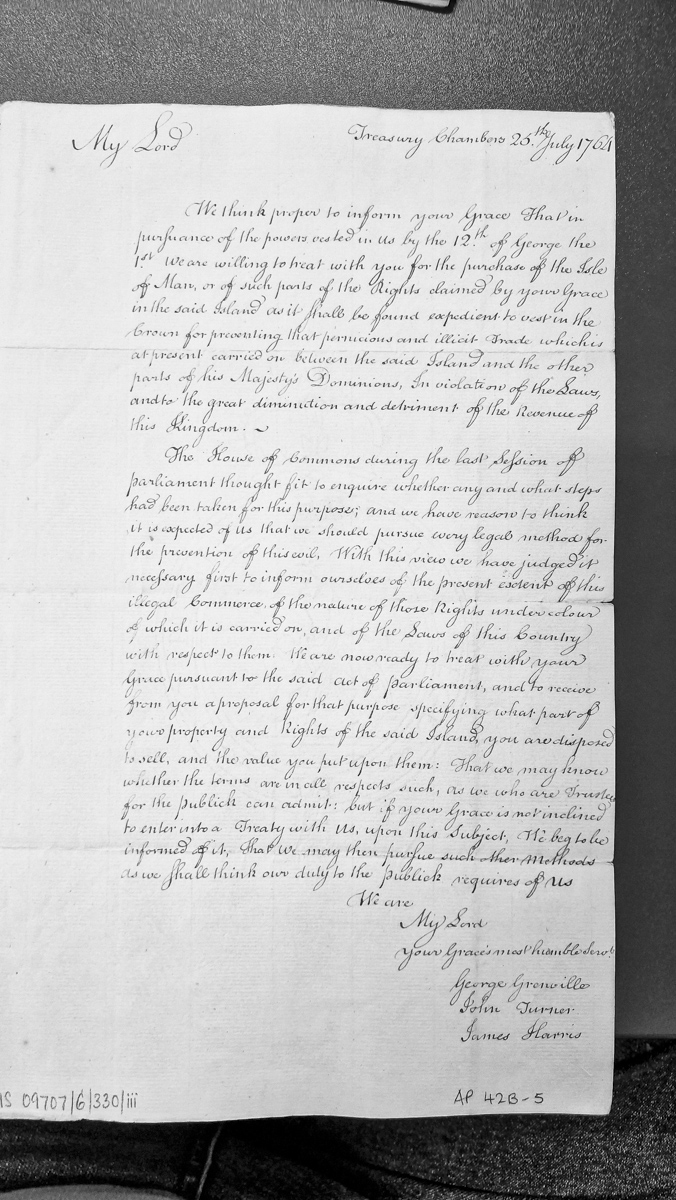 My Lord
Treasury Chambers 25th July 1764
We think proper to inform your Grace That in
pursuance of the powers vested in us by the 12th of George the
1st We are willing to treat with you for the purchase of the Isle
of Man, or of such parts of the Rights claimed by your Grace
in the said Island as it shall be found expedient to vest in the
Crown for preventing that pernicious and illicit Trade which is
at present carried on between the said Island and the other
parts of his Majesty's Dominions, In violation of the Laws,
and to the great diminution and detriment of the Revenue of
this Kingdom. ~
The House of Commons during the last Session of
Parliament thought fit to enquire whether any and what steps
had been taken for this purpose; and we have reason to think
it is expected of us that we should pursue every legal method for
the prevention of this evil, With this view we have judged it
necessary first to inform ourselves of the present extent of this
illegal Commerce, of the nature of those Rights under colour
of which it is carried on, and of the Laws of this Country
with respect to them. We are now ready to treat with your
Grace pursuant to the said Act of Parliament, and to receive
from you a proposal for that purpose specifying what part of
your property and Rights of the said Island, you are disposed
to sell, and the value you put upon them: That we may know
whether the terms are in all respects such, as we who are Trustees
for the Publick can admit: but if your Grace is not inclined
to enter into a Treaty with Us, upon this Subject, We beg to be
informed of it, That we may then pursue such other Methods
as we shall think our duty to the Publick requires of Us
We are
My Lord
your Grace's most humble Servts
George Grenville
John Turner
James Harris
MS 09707/6/330/iii
AP 42B-5